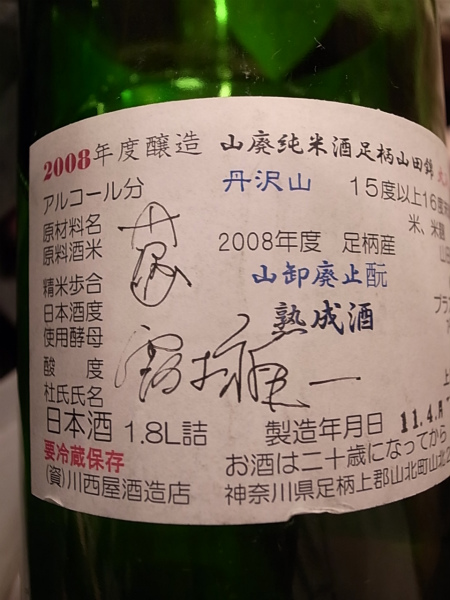 2008年度醸造 山廃純米酒足柄山田錦
アルコール分 丹沢山 15度以上16度
原材料名 米、米麹
原料酒米 2008年度 足柄産 山田
精米歩合 山卸廃止酛
日本酒度 熟成酒 プラ
使用酵母
酸度
杜氏氏名
日本酒 1.8L詰 製造年月日 11.4.
要冷蔵保存 お酒は二十歳になってから
(資)川西屋酒造店 神奈川県足柄上郡山北町山北